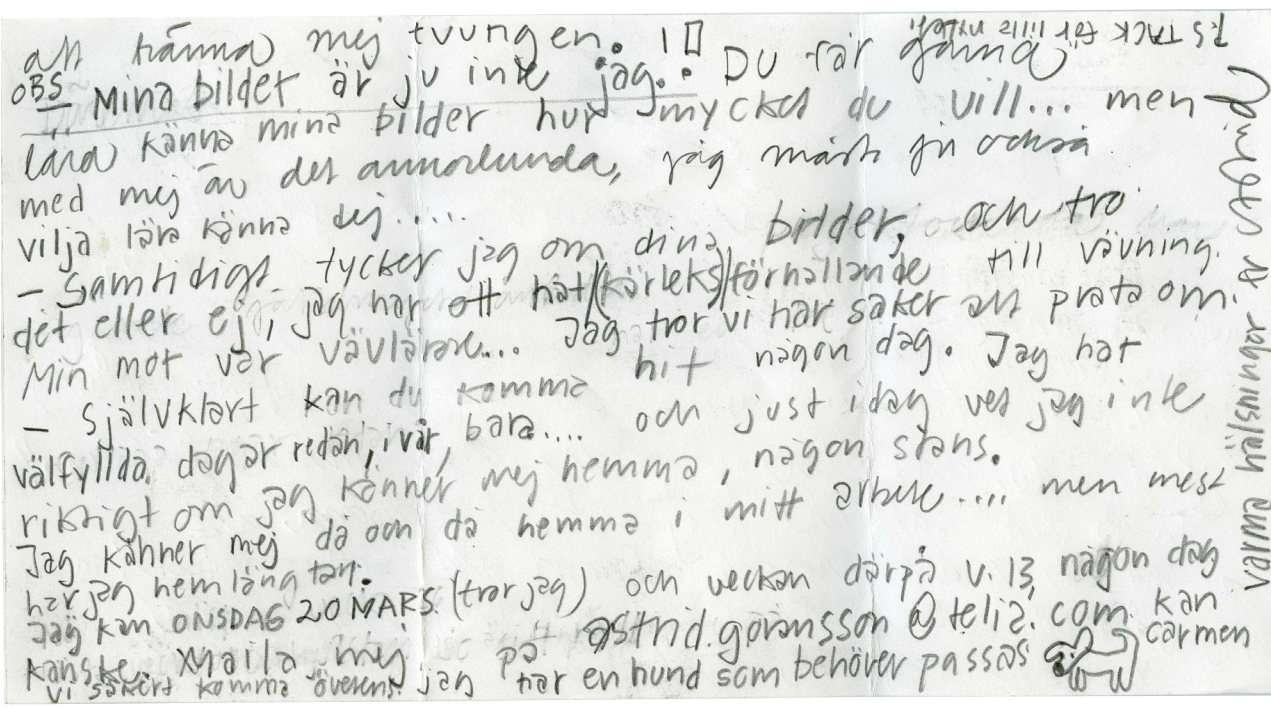 att känna mej tvungen. !
OBS Mina bilder är ju inte jag. Du får gärna
lära känna mina bilder hur mycket du vill... men
med mej är det annorlunda, jag måste ju också
vilja lära känna dej.....
– Samtidigt tycker jag om dina bilder, och tro
det eller ej, jag har ett hat/(kärleks)förhållande till vävning.
Min mor var vävlärare... Jag tror vi har saker att prata om.
– Självklart kan du komma hit någon dag. Jag har
välfyllda dagar redan, i vår, bara.... och just idag vet jag inte
riktigt om jag känner mej hemma, någon stans.
Jag känner mej då och då hemma i mitt arbete.... men mest
har jag hemlängtan.
Jag kan ONSDAG 20 MARS (tror jag) och veckan därpå v. 13 någon dag
kanske. Maila mej på astrid.goransson@telia.com. kan
vi säkert komma överens. jag har en hund som behöver passas
Carmen
varma hälsningar
P.S TACK för lilla